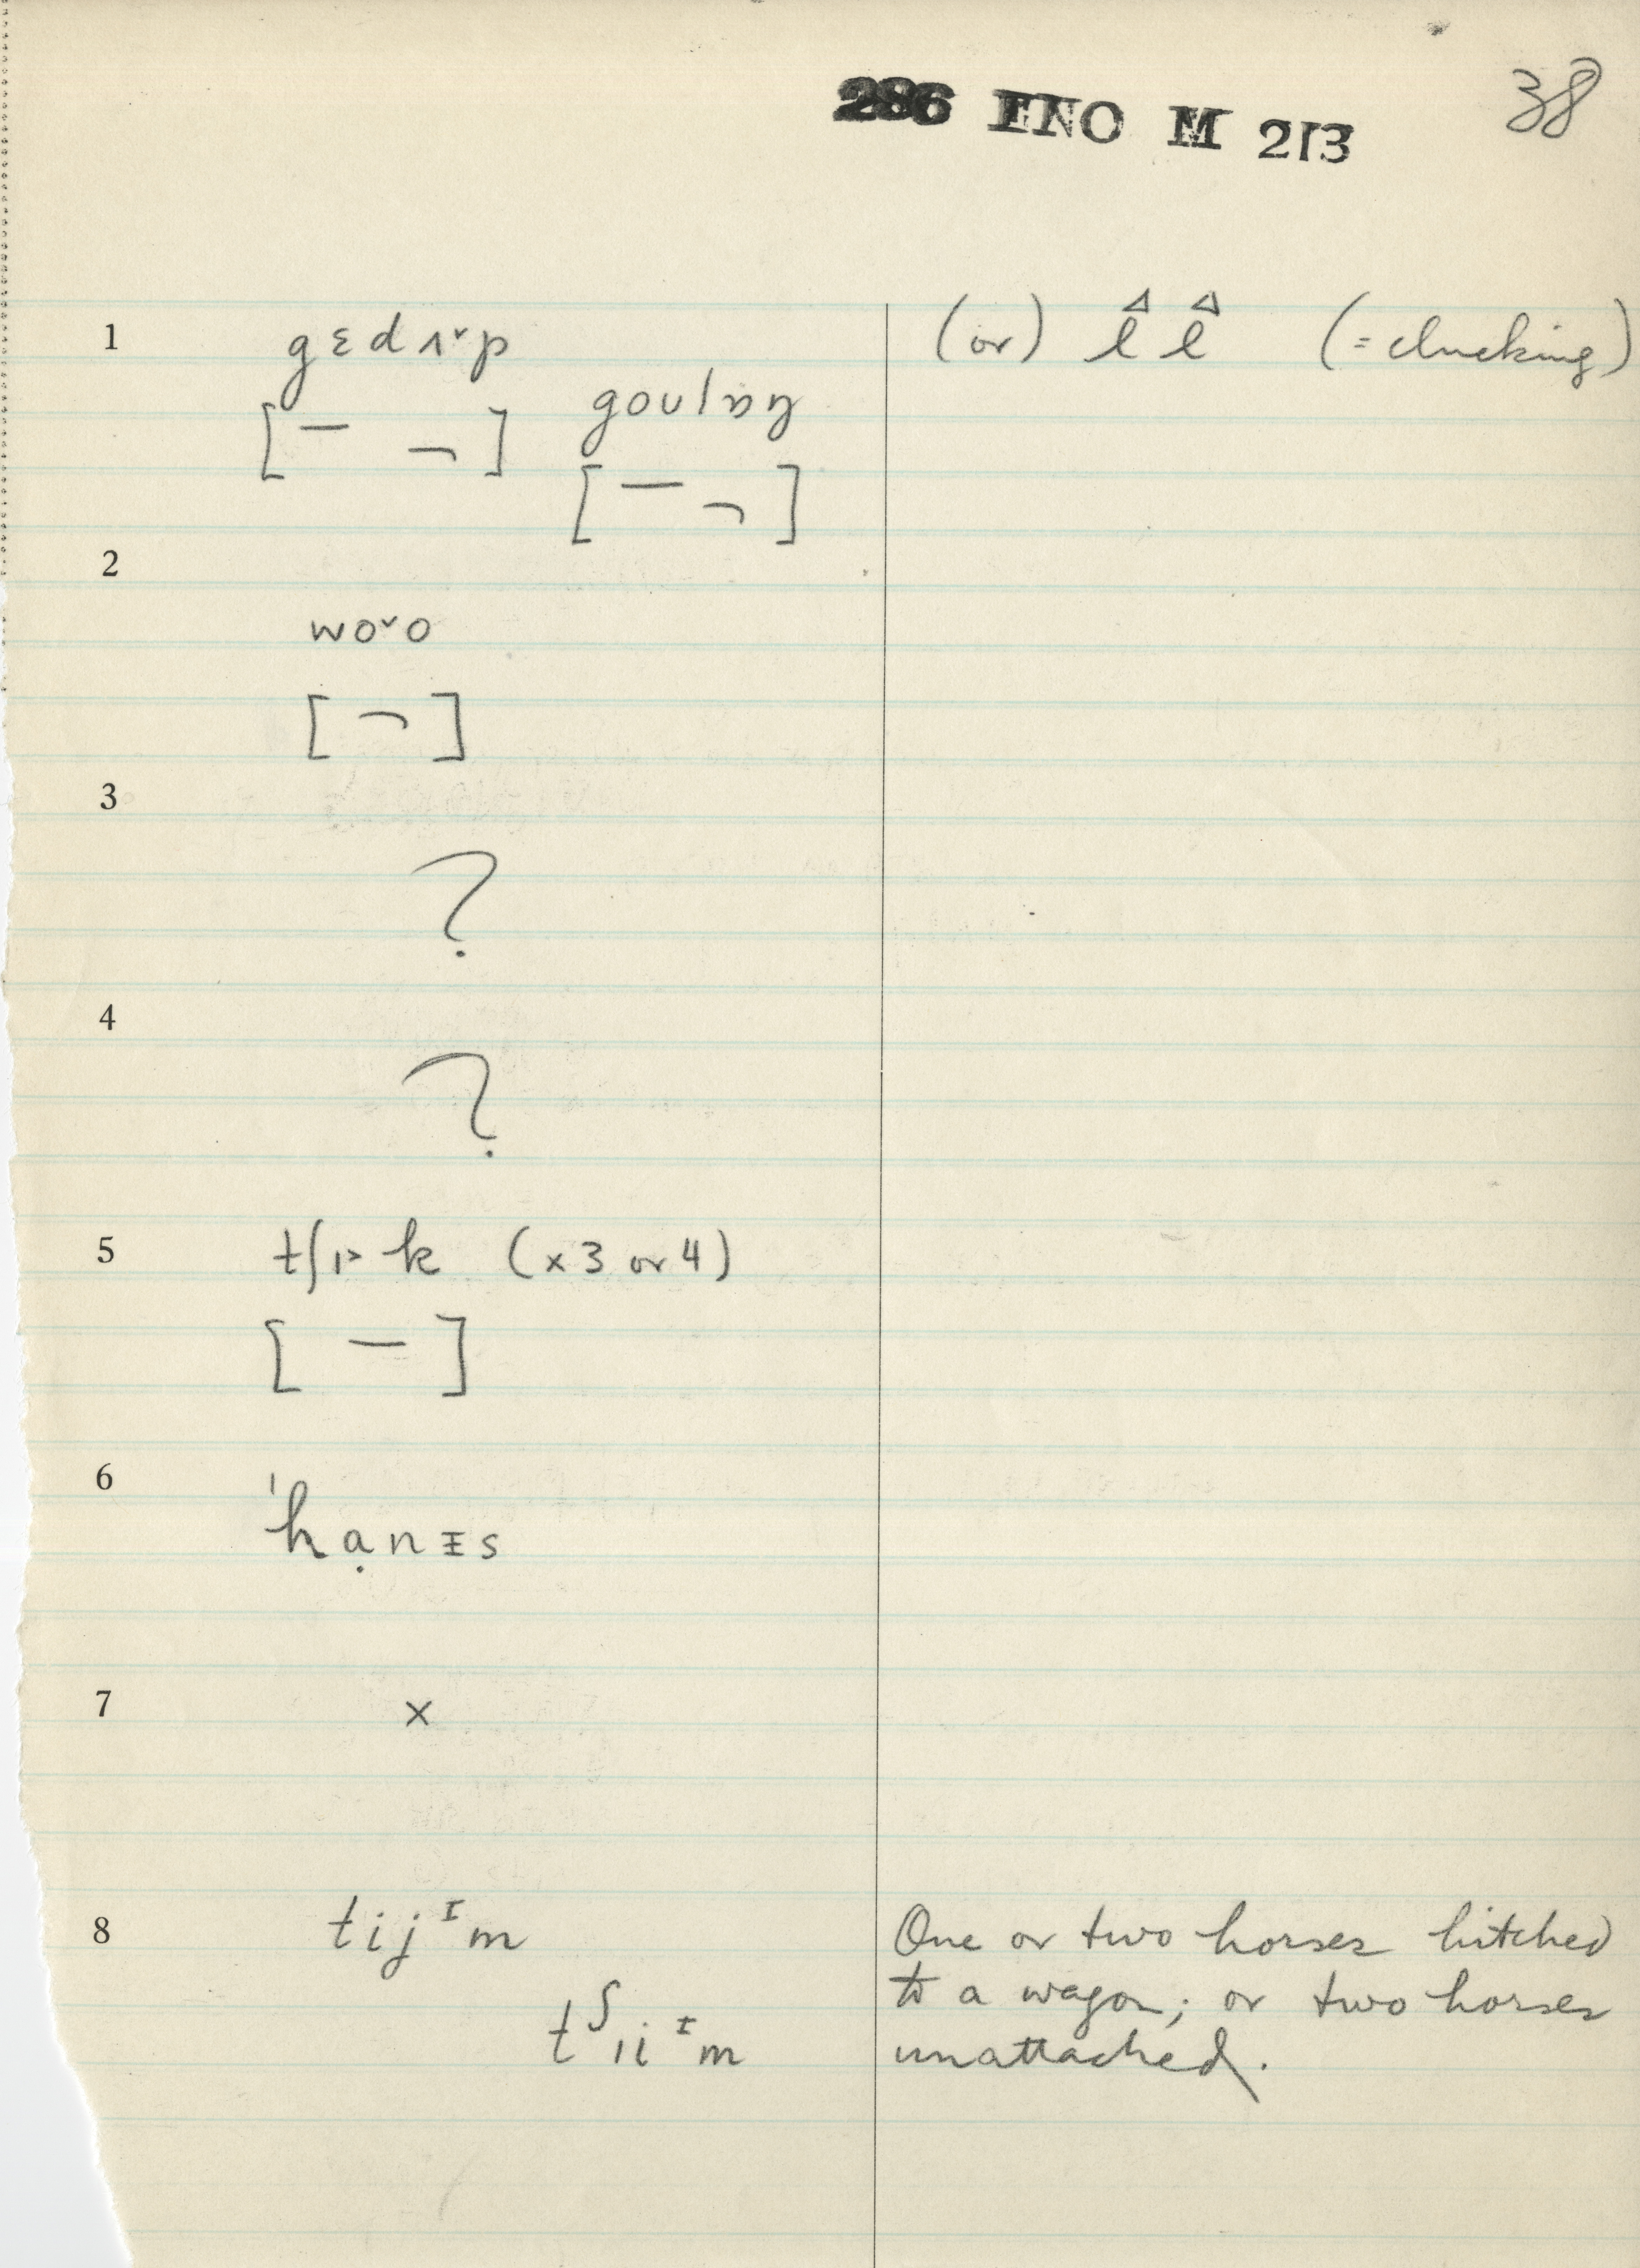 286 ENO M 213 38
1 gɛdʌ˅p (or) l l (= clucking)
[ – ¬ ] goulɒŋ
[ – ¬ ]
2
wo˅o
[ ¬ ]
3
?
4
?
5 tʃɪ˃k (x 3 or 4)
[ – ]
6 ˈhạnɪs
7 x
8 tijᴵm One or two horses hitched
to a wagon; or two horses
unattached.